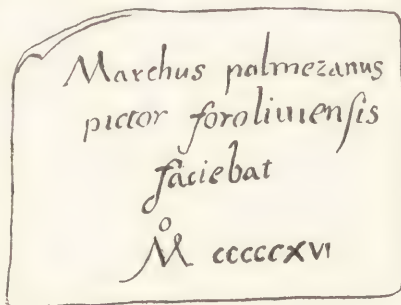 Marchus palmezanus
pictor foroliuienſis
faciebat
M̊ cccccxvı